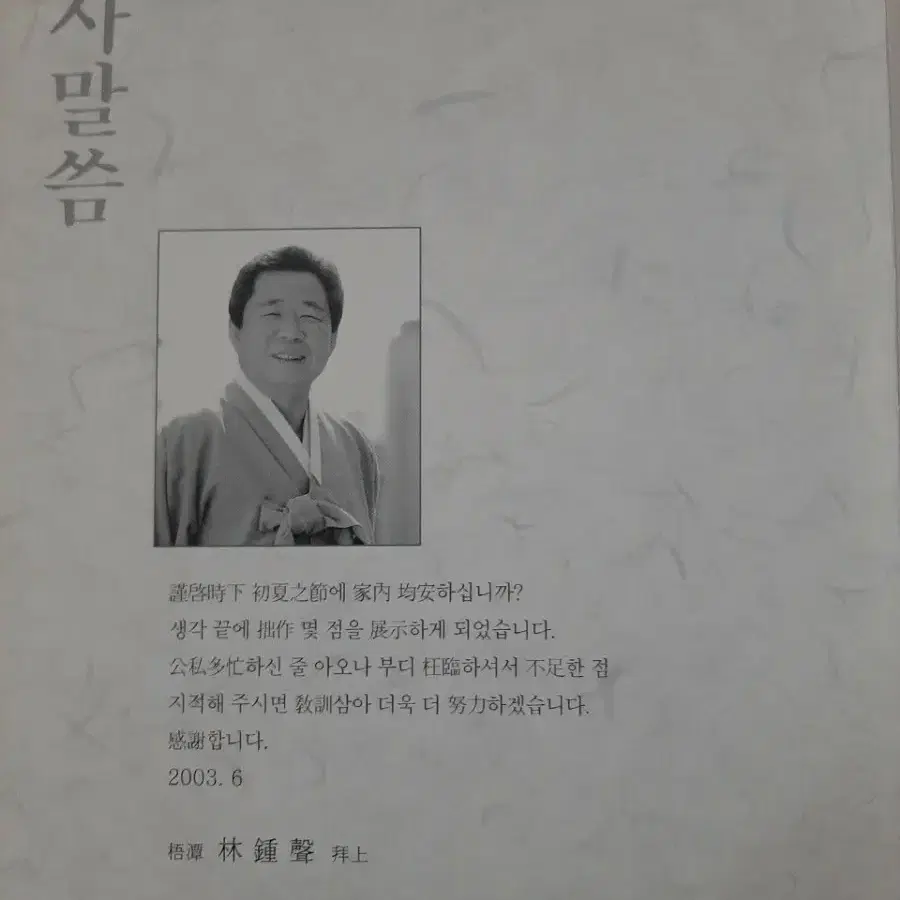 사말씀
謹啓時下 初夏之節에 家內 均安하십니까?
생각 끝에 拙作 몇 점을 展示하게 되었습니다.
公私多忙하신 줄 아오나 부디 枉臨하셔서 不足한 점
지적해 주시면 敎訓삼아 더욱 더 努力하겠습니다.
感謝합니다.
2003. 6
梧潭 林鍾聲 拜上